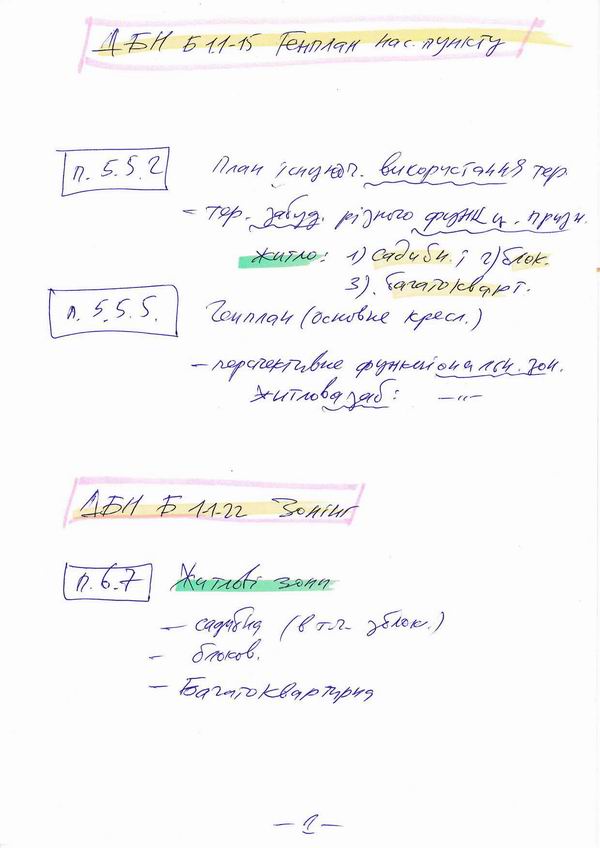 ДБН Б 1.1-15 Генплан нас. пункту
п. 5.5.2
План існуюч. використання тер.
= тер. забуд. різного функц. призн.
житло: 1) садибн.; 2) блок.
3). багатокварт.
п. 5.5.5.
Генплан (основне кресл.)
– перспективне функціональн. зон.
Житлова заб: –"–
ДБН Б 1.1-22 Зонінг
п. 6.7
Житлові зони
– садибна (в т.ч. зблок.)
– блоков.
– Багатоквартирна
– 1 –